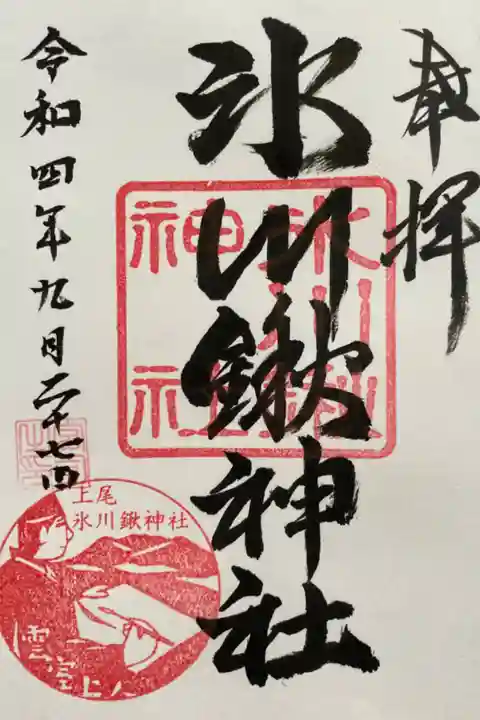 奉拝
氷川鍬神社
氷川鍬神社
令和四年九月二十七日
上尾
氷川鍬神社
雲室上人